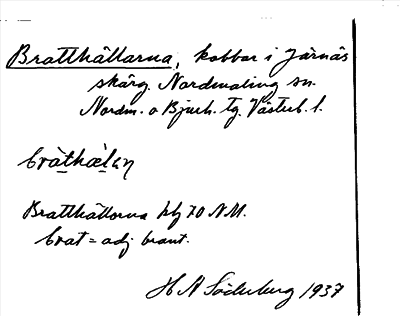 Bratthällarna, kobbar i Järnäs
skärg. Nordmaling sn.
Nordm. o Bjurh. tg. Västerb. l.
bràthælan
Bratthällorna blj 70 N.M.
brat = adj brant.
H A Söderberg 1937